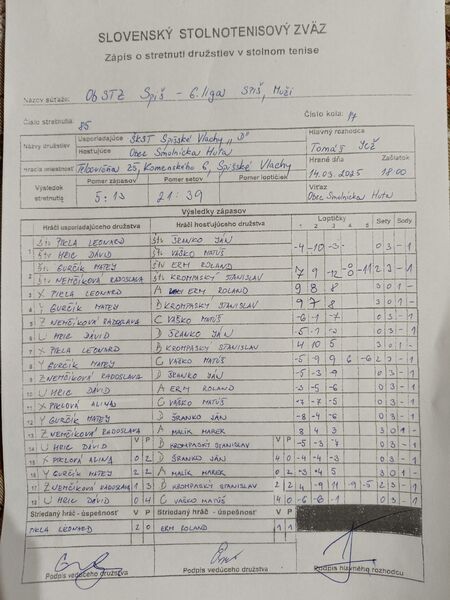 SLOVENSKÝ STOLNOTENISOVÝ ZVÄZ
Zápis o stretnutí družstiev v stolnom tenise
Názov súťaže: ObSTZ Spiš - 6. liga Spiš, Muži
Číslo stretnutia: 85 Číslo kola: 17
Názvy družstiev Usporiadajúce ŠKST Spišské Vlachy "D" Hlavný rozhodca
Hosťujúce Obec Smolnícka Huta Tomáš
Hracia miestnosť Telocvičňa 25, Komenského 6, Spišské Vlachy Hrané dňa Začiatok
14.03.2025 18:00
Výsledok stretnutia Pomer zápasov Pomer setov Pomer loptičiek Víťaz
5:13 21:39 Obec Smolnícka Huta
Výsledky zápasov
Hráči usporiadajúceho družstva Hráči hosťujúceho družstva Loptičky Sety Body
1 2 3 4 5
1 Štv PIKLA LEONARD Štv ŠRANKO JÁN -4 -10 -3 0 3 - 1
Štv HRIC DÁVID Štv VAŠKO MATÚŠ
2 Štv GURČÍK MATEJ Štv ERM ROLAND 7 9 -12 -11 2 3 - 1
Štv NEMČÍKOVÁ RADOSLAVA Štv KROMPASKÝ STANISLAV
3 X PIKLA LEONARD A ERM ROLAND 9 8 8 3 0 1 -
4 Y GURČÍK MATEJ B KROMPASKÝ STANISLAV 9 7 8 3 0 1 -
5 Z NEMČÍKOVÁ RADOSLAVA C VAŠKO MATÚŠ -6 -1 -7 0 3 - 1
6 U HRIC DÁVID D ŠRANKO JÁN -5 -1 -3 0 3 - 1
7 X PIKLA LEONARD B KROMPASKÝ STANISLAV 4 10 5 3 0 1 -
8 Y GURČÍK MATEJ C VAŠKO MATÚŠ -5 9 9 6 -6 2 3 - 1
9 Z NEMČÍKOVÁ RADOSLAVA D ŠRANKO JÁN -5 -3 -9 0 3 - 1
10 U HRIC DÁVID A ERM ROLAND -3 -5 -6 0 3 - 1
11 X PIKLOVÁ ALINA C VAŠKO MATÚŠ -7 -7 -5 0 3 - 1
12 Y GURČÍK MATEJ D ŠRANKO JÁN -8 -4 -6 0 3 - 1
13 Z NEMČÍKOVÁ RADOSLAVA A MALÍK MAREK 8 4 3 3 0 1 -
14 U HRIC DÁVID V P B KROMPASKÝ STANISLAV V P -5 -3 -7 0 3 - 1
15 X PIKLOVÁ ALINA 0 2 D ŠRANKO JÁN 4 0 -4 -4 -3 0 3 - 1
16 Y GURČÍK MATEJ 2 2 A MALÍK MAREK 0 2 -3 4 5 3 0 1 -
17 Z NEMČÍKOVÁ RADOSLAVA 1 3 B KROMPASKÝ STANISLAV 2 2 4 -9 11 9 -5 2 3 - 1
18 U HRIC DÁVID 0 4 C VAŠKO MATÚŠ 4 0 -6 -6 -1 0 3 - 1
Striedaný hráč - úspešnosť V P Striedaný hráč - úspešnosť V P
PIKLA LEONARD 2 0 ERM ROLAND 1 1
Podpis vedúceho družstva Podpis vedúceho družstva Podpis hlavného rozhodcu